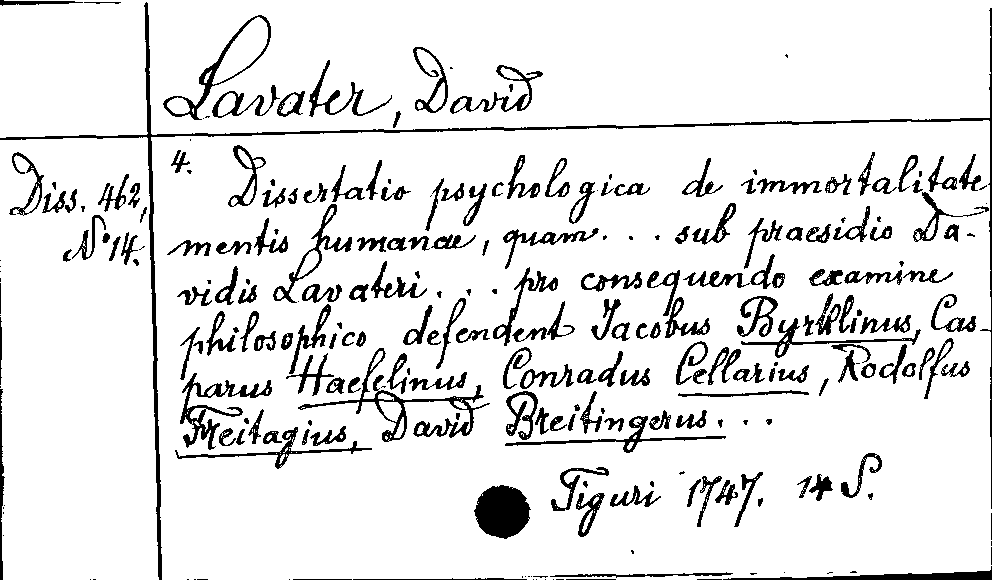 Lavater, David
Diss. 462,
No 14.
4. Dissertatio psychologica de immortalitate
mentis humanae, quam... sub praesidio Da-
vidis Lavateri... pro consequendo examine
philosophico defendent Jacobus Byrklinus, Cas-
parus Haefelinus, Conradus Cellarius, Rodolfus
Freitagius, David Breitingerus...
Tiguri 1747. 14 S.